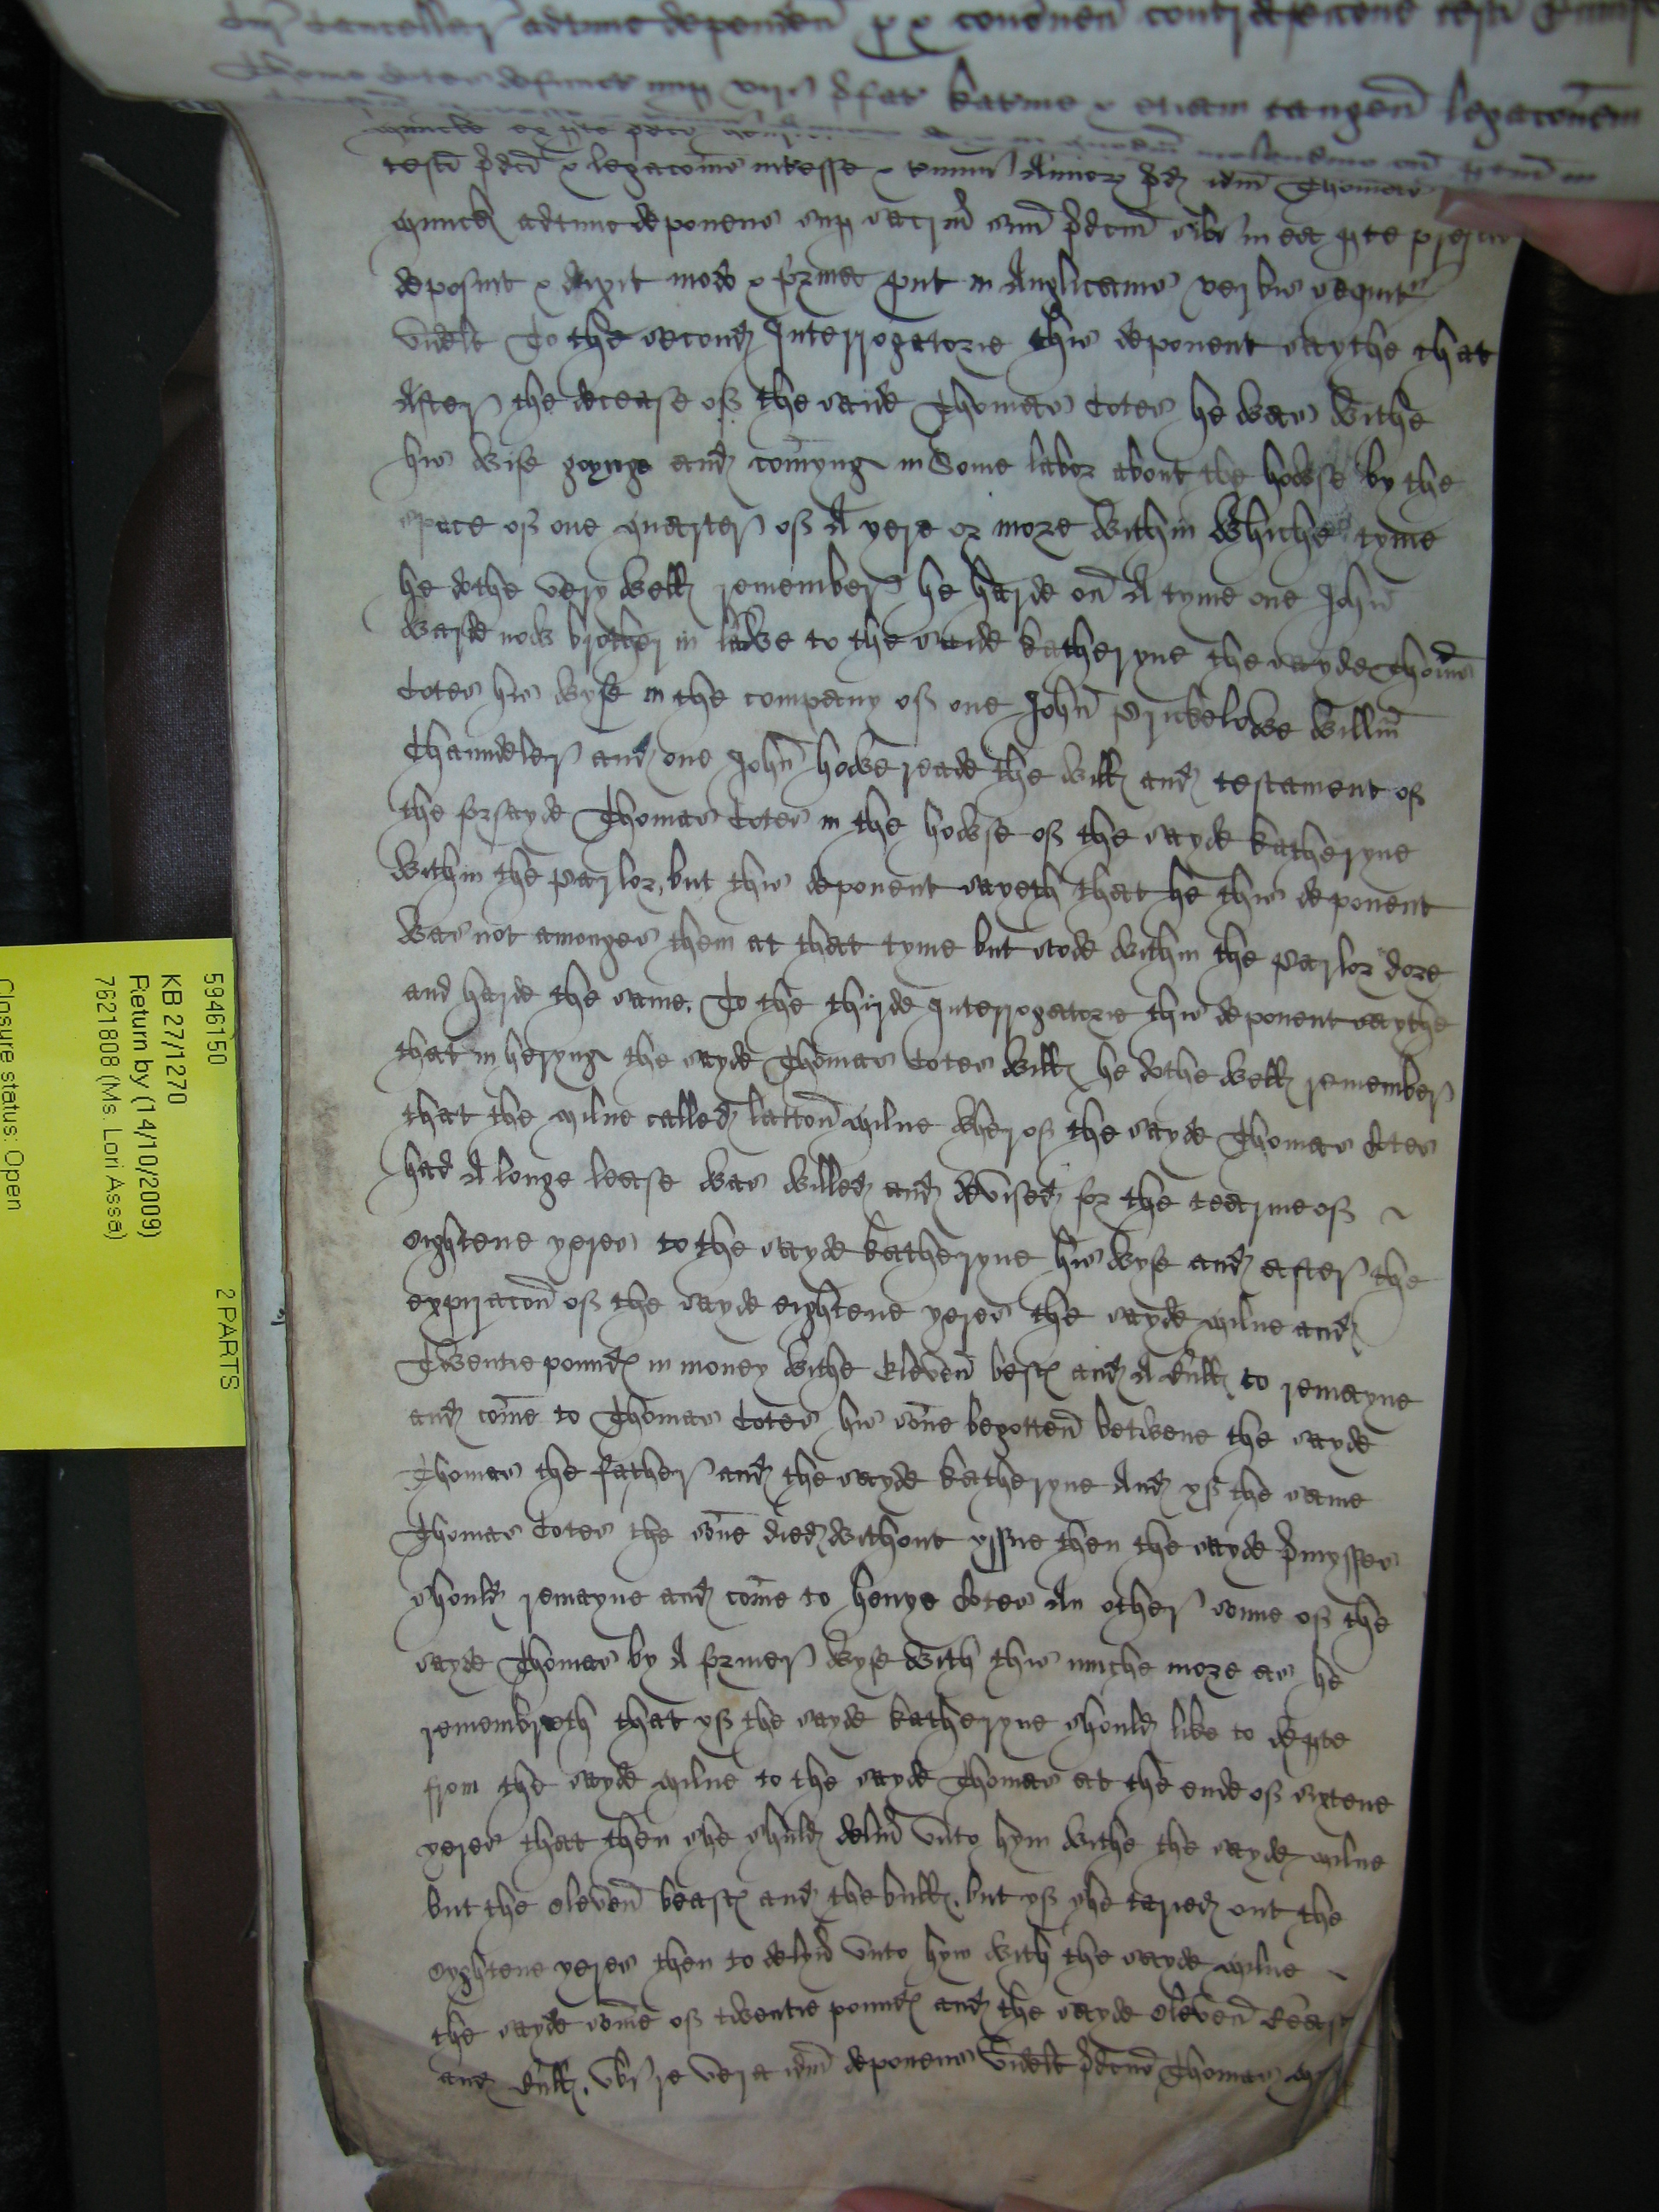 Cur Cancellar adtunc dependen
Thome Cotes defunct nup viri p̃fat Katerine & etiam tangen legacoñem
testi p̃dc̃i & legacoñis interesse & Annor p̃d idm Thomas
Munck adtunc deponens sup sacrm suu p̃dcm sibi in ea pte
deposuit & dixit modo & forma put in Anglicanis verbis sequit
videlt To the second Interrogatorie this deponent saythe that
After the decease off the saide Thomas Cotes he was withe
his wife goynge and comyng in Some labor about the howse by the
space off one quarter off A yere or more within whiche tyme
he dothe very well remember he harde on A tyme one John
warde now brother in lawe to the saide Katheryne the sayde Thom̃s
Cotes his wyfe in the company off one John Prickelowe Willm̃
Chaundeler and one John howe reade the will and testament off
the forsayde Thomas Cotes in the howse off the sayde Katheryne
within the parlor, but this deponent sayeth that he this deponent
was not amonges them at that tyme but stode within the parlor dore
and harde the same. To the thirde Interrogatorie this deponent saythe
that in heryng the sayde Thomas Cotes will he dothe well remember
that the milne called latton milne wherof the sayde Thomas Cotes
had A longe lease was willed and devised for the tearme off
eightene yeres to the sayde Katheryne his wyfe and after the
expiracoñ off the sayde eightene yeres the sayde milne and
Twentie pound in money withe Eleven best and A bull to remayne
and come to Thomas Cotes his sone begotten betwene the sayde
Thomas the father and the sayde Katheryne And yff the same
Thomas Cotes the sone died without yssue then the sayde p̃mysses
should remayne and come to henrye Cotes An other sonne off the
sayde Thomas by A former wyfe with this muche more as he
remembreth that yff the sayde Katheryne should like to depte
from the sayde milne to the sayde Thomas at the ende off sixtene
yeres that then she shuld deliu unto hym withe the sayde milne
but the eleven beast and the bull. but yff she taried out the
eyghtene yeres then to delyu unto hym with the sayde milne
the sayde some off twentie pound and the sayde eleven beast
and bull. ubi re vera idm deponens videlt p̃dcus Thomas
5946150
KB 27/1270
Return by (14/10/2009)
7621808 (Ms. Lori Assa)
2 PARTS
Closure status: Open